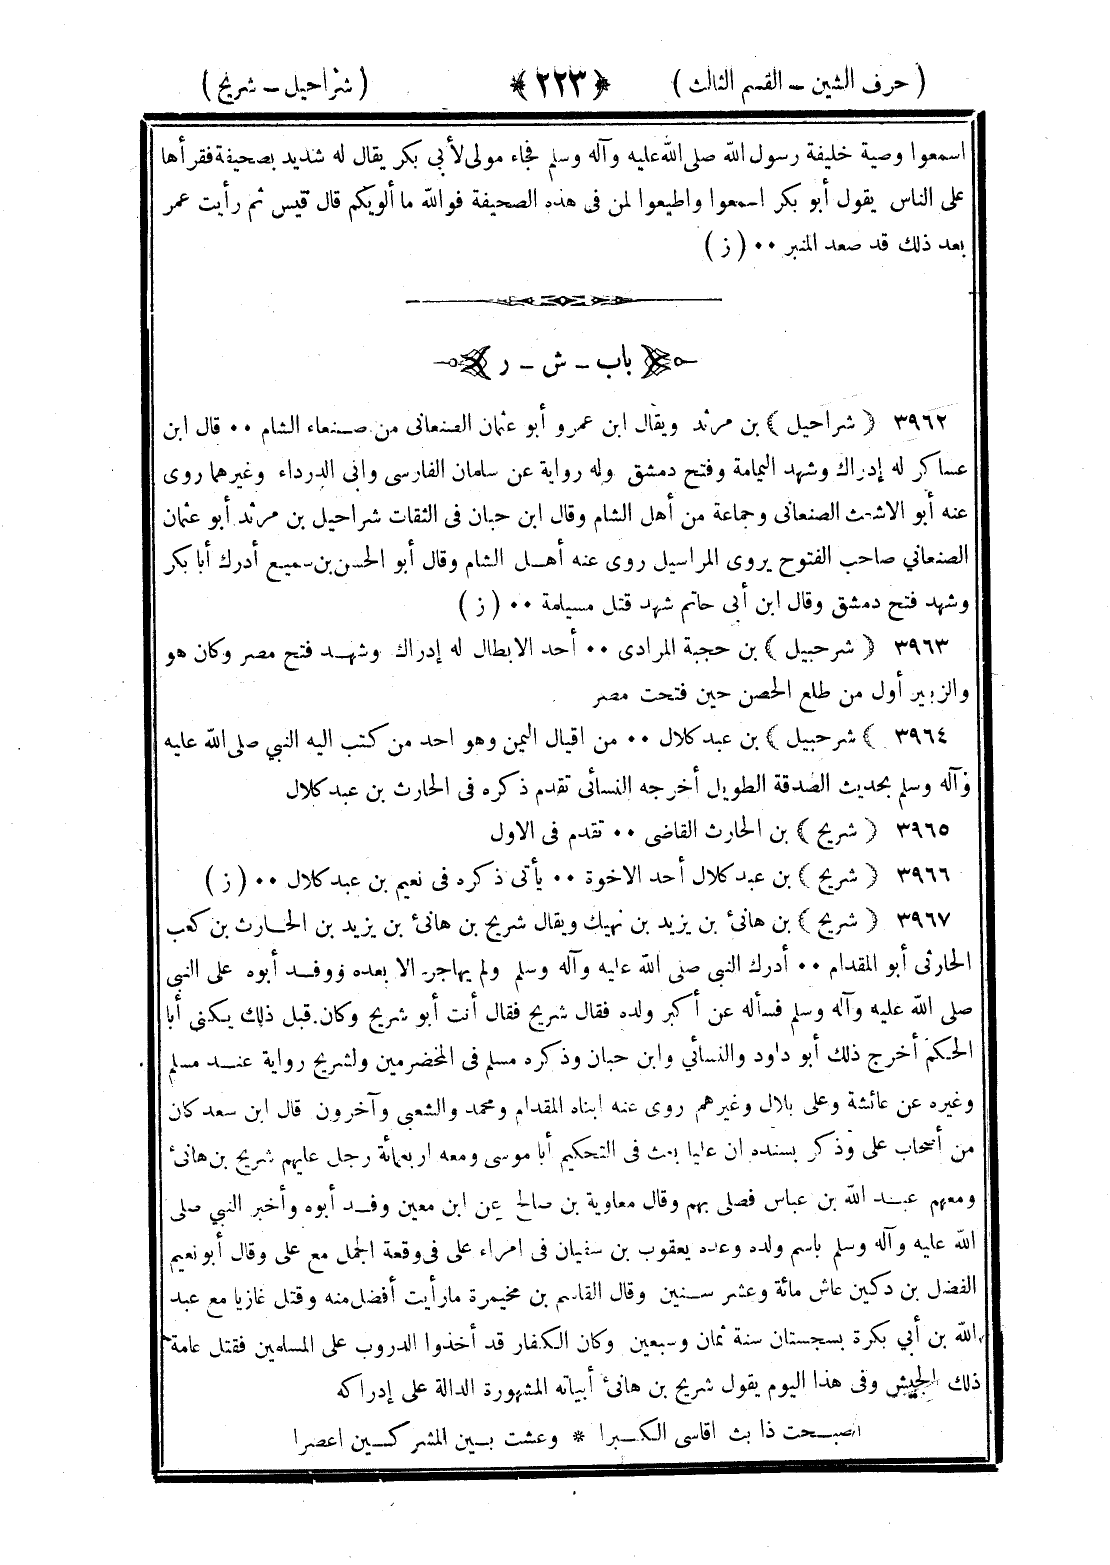 ( حرف الشين – القسم الثالث ) ﴿ ٢٢٣ ﴾ ( شراحيل – شريح )
اسمعوا وصية خليفة رسول الله صلى الله عليه وآله وسلم فجاء مولى لأبي بكر يقال له شديد بصحيفة فقرأها
على الناس يقول أبو بكر اسمعوا واطيعوا لمن فى هذه الصحيفة فوالله ما ألويكم قال قيس ثم رأيت عمر
بعد ذلك قد صعد المنبر ٠٠ ( ز )
باب – ش – ر
٣٩٦٢ ( شراحيل ) بن مرثد ويقال ابن عمرو أبو عثمان الصنعانى من صنعاء الشام ٠٠ قال ابن
عساكر له إدراك وشهد اليمامة وفتح دمشق وله رواية عن سلمان الفارسى وابى الدرداء وغيرهما روى
عنه أبو الاشعث الصنعانى وجماعة من أهل الشام وقال ابن حبان فى الثقات شراحيل بن مرثد أبو عثمان
الصنعاني صاحب الفتوح يروى المراسيل روى عنه أهل الشام وقال أبو الحسن بن سميع أدرك أبا بكر
وشهد فتح دمشق وقال ابن أبى حاتم شهد قتل مسيلمة ٠٠ ( ز )
٣٩٦٣ ( شرحبيل ) بن حجبة المرادى ٠٠ أحد الابطال له إدراك وشهد فتح مصر وكان هو
والزبير أول من طلع الحصن حين فتحت مصر
٣٩٦٤ ( شرحبيل ) بن عبد كلال ٠٠ من اقيال اليمن وهو احد من كتب اليه النبي صلى الله عليه
وآله وسلم بحديث الصدقة الطويل أخرجه النسائى تقدم ذكره فى الحارث بن عبد كلال
٣٩٦٥ ( شريح ) بن الحارث القاضى ٠٠ تقدم فى الاول
٣٩٦٦ ( شريح ) بن عبد كلال أحد الاخوة ٠٠ يأتى ذكره فى نعيم بن عبد كلال ٠٠ ( ز )
٣٩٦٧ ( شريح ) بن هانئ بن يزيد بن نهيك ويقال شريح بن هانئ بن يزيد بن الحارث بن كعب
الحارثى أبو المقدام ٠٠ أدرك النبى صلى الله عليه وآله وسلم ولم يهاجر الا بعده ووفد أبوه على النبى
صلى الله عليه وآله وسلم فسأله عن أكبر ولده فقال شريح فقال أنت أبو شريح وكان قبل ذلك يكنى أبا
الحكم أخرج ذلك أبو داود والنسائي وابن حبان وذكره مسلم فى المخضرمين ولشريح رواية عند مسلم
وغيره عن عائشة وعلى بلال وغيرهم روى عنه ابناه المقدام ومحمد والشعبى وآخرون قال ابن سعد كان
من أصحاب على وذكر بسنده ان عليا بعث فى التحكيم أبا موسى ومعه اربعمائة رجل عليهم شريح بن هانئ
ومعهم عبد الله بن عباس فصلى بهم وقال معاوية بن صالح عن ابن معين وفد أبوه وأخبر النبي صلى
الله عليه وآله وسلم باسم ولده وعده يعقوب بن سفيان فى امراء على فى وقعة الجمل مع على وقال أبو نعيم
الفضل بن دكين عاش مائة وعشر سنين وقال القاسم بن مخيمرة مارأيت أفضل منه وقتل غازيا مع عبد
الله بن أبي بكرة بسجستان سنة ثمان وسبعين وكان الكفار قد أخذوا الدروب على المسلمين فقتل عامة
ذلك الجيش وفى هذا اليوم يقول شريح بن هانئ أبياته المشهورة الدالة على إدراكه
اصبحت ذا بث اقاسى الكبرا * وعشت بين المشركين اعصرا